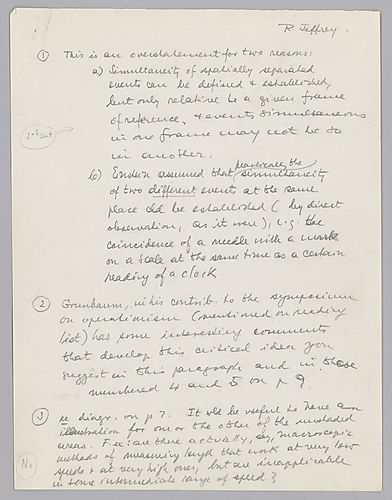 R. Jeffrey.
① This is an overstatement for two reasons:
a) Simultaneity of spatially separated
events can be defined & established,
but only relative to a given frame
of reference, & events simultaneous
in one frame may not be so
in another.
b) Einstein assumed that practically the simultaneity
of two different events at the same
place cld be established (by direct
observation, as it were), e.g. the
coincidence of a needle with a mark
on a scale at the same time as a certain
reading of a clock
② Grunbaum, in his contrib. to the symposium
on operationism (mentioned on reading
list) has some interesting comments
that develop this critical idea you
suggest in this paragraph and in those
numbered 4 and 5 on p 9.
③ re diagr. on p 7: It wld be useful to have an
illustration for one or the other of the unshaded
areas. F.ex: are there actually, say, macroscopic
methods of measuring lengt that work at very low
speeds & at very high ones, but are inapplicable
in some intermediate range of speed?
No